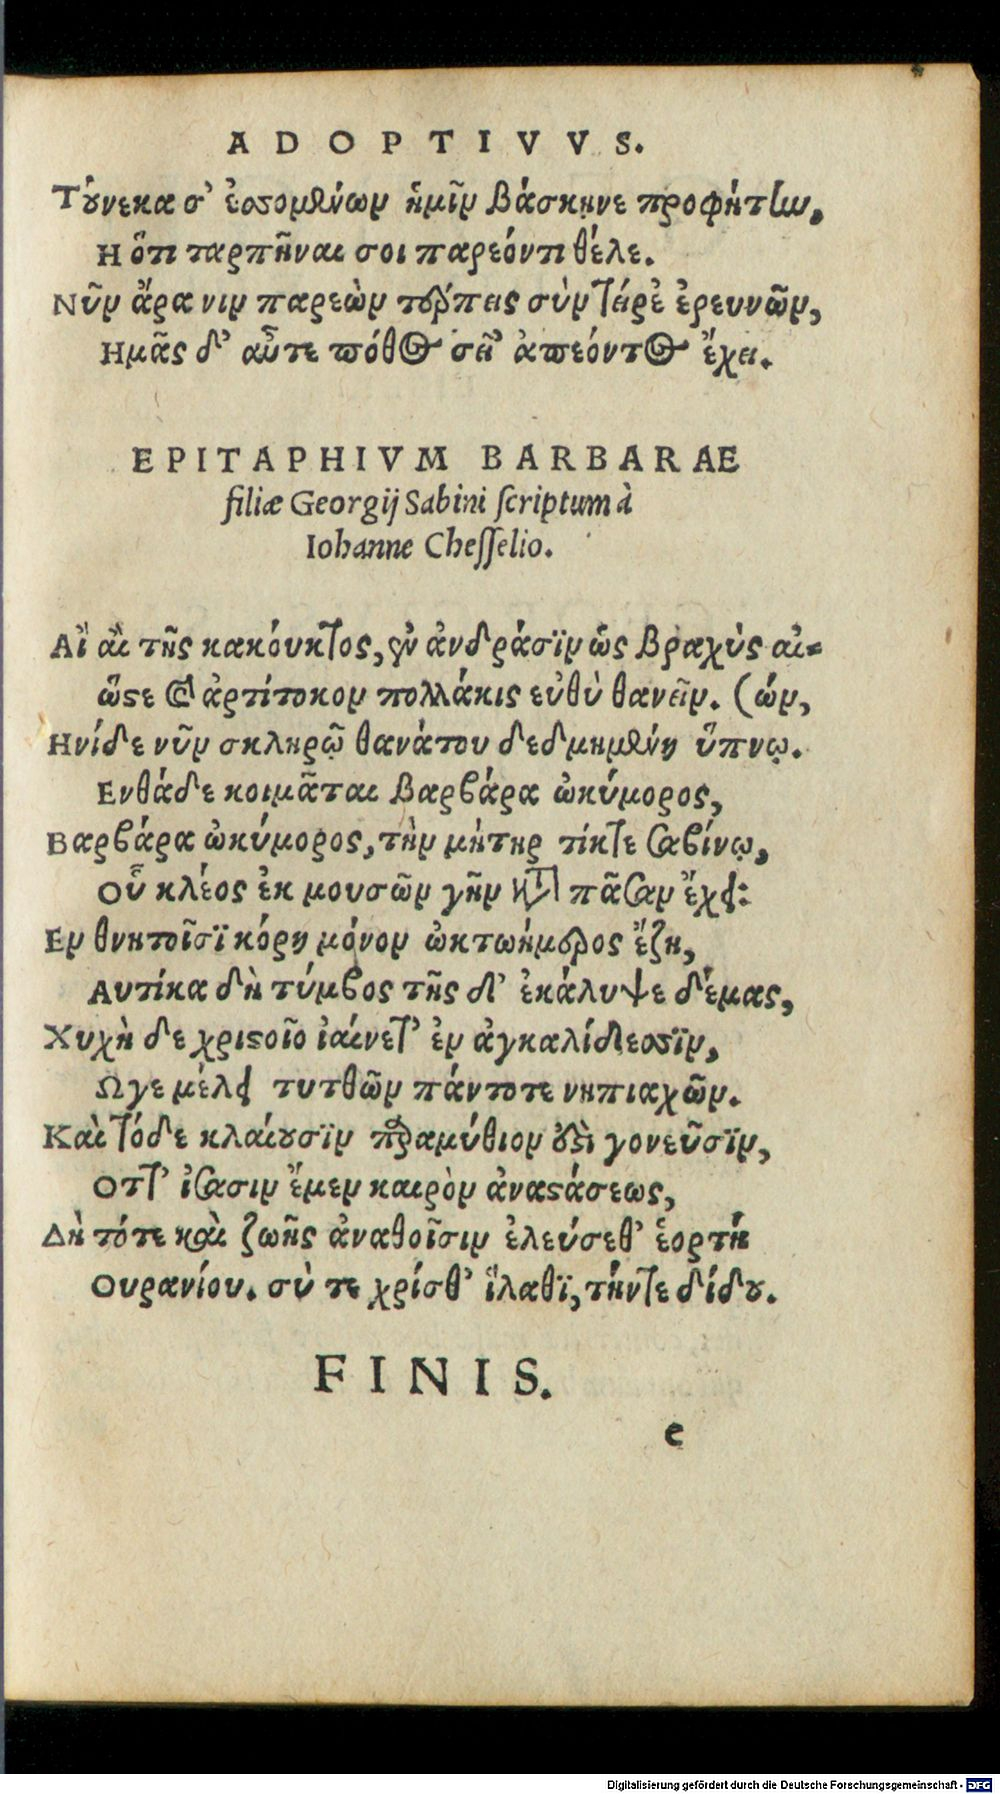 ADOPTIVVS.
Τοὔνεκα σ' ἐσσομένων ἡμῖν βάσκηνε προφήτην,
Η ὅτι ταρπῆναι σοι παρεόντι θέλε.
Νῦν ἄρα νιν παρεὼν τέρπεις σὺν τείρἐ ἐρευνῶν,
Ημᾶς δ' αὖτε πόθος σεῖ' ἀπεόντος ἔχει.
EPITAPHIVM BARBARAE
filiæ Georgij Sabini ſcriptum à
Iohanne Cheſſelio.
Αἲ αἲ τῆς κακότητος, ἐν ἀνδράσϊν ὡς βραχὺς αἰ-
ὥστε καὶ ἀρτίτοκον πολλάκις εὐθὺ θανεῖν. (ών,
Ηνίδε νῦν σκληρῷ θανάτου δεδμημένη ὕπνῳ.
Ενθάδε κοιμᾶται Βαρβάρα ὠκύμορος,
Βαρβάρα ὠκύμορος, τὴν μήτηρ τίκτε Σαβίνῳ,
Οὗ κλέος ἐκ μουσῶν γῆν κατὰ πᾶσαν ἔχει:
Εν θνητοῖσϊ κόρη μόνον ὠκτωήμερος ἔζη,
Αυτίκα δὴ τύμβος τῆς δ' ἐκάλυψε δέμας,
Χυχὴ δε χριστοῖο ἰαίνετ' ἐν ἀγκαλίδεσσϊν,
Ωγε μέλει τυτθῶν πάντοτε νηπιαχῶν.
Καὶ τόδε κλαίουσϊν παραμύθιον ἐστὶ γονεῦσϊν,
Οττ' ἰσασιν ἔμεν καιρὸν ἀναστάσεως,
Δὴ τότε καὶ ζωῆς ἀναθοῖσιν ἐλεύσεθ' ἑορτὴ
Ουρανίου. σὺ τε χρίσθ' ἵλαθϊ, τήντε δίδου.
FINIS.
e
Digitalisierung gefördert durch die Deutsche Forschungsgemeinschaft - DFG